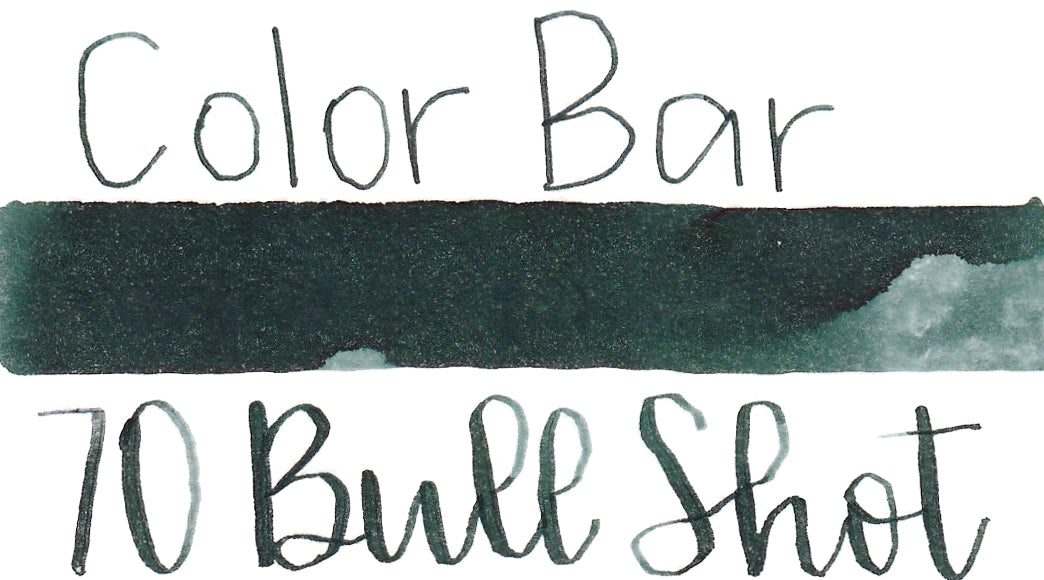 Color Bar
70 Bull Shot